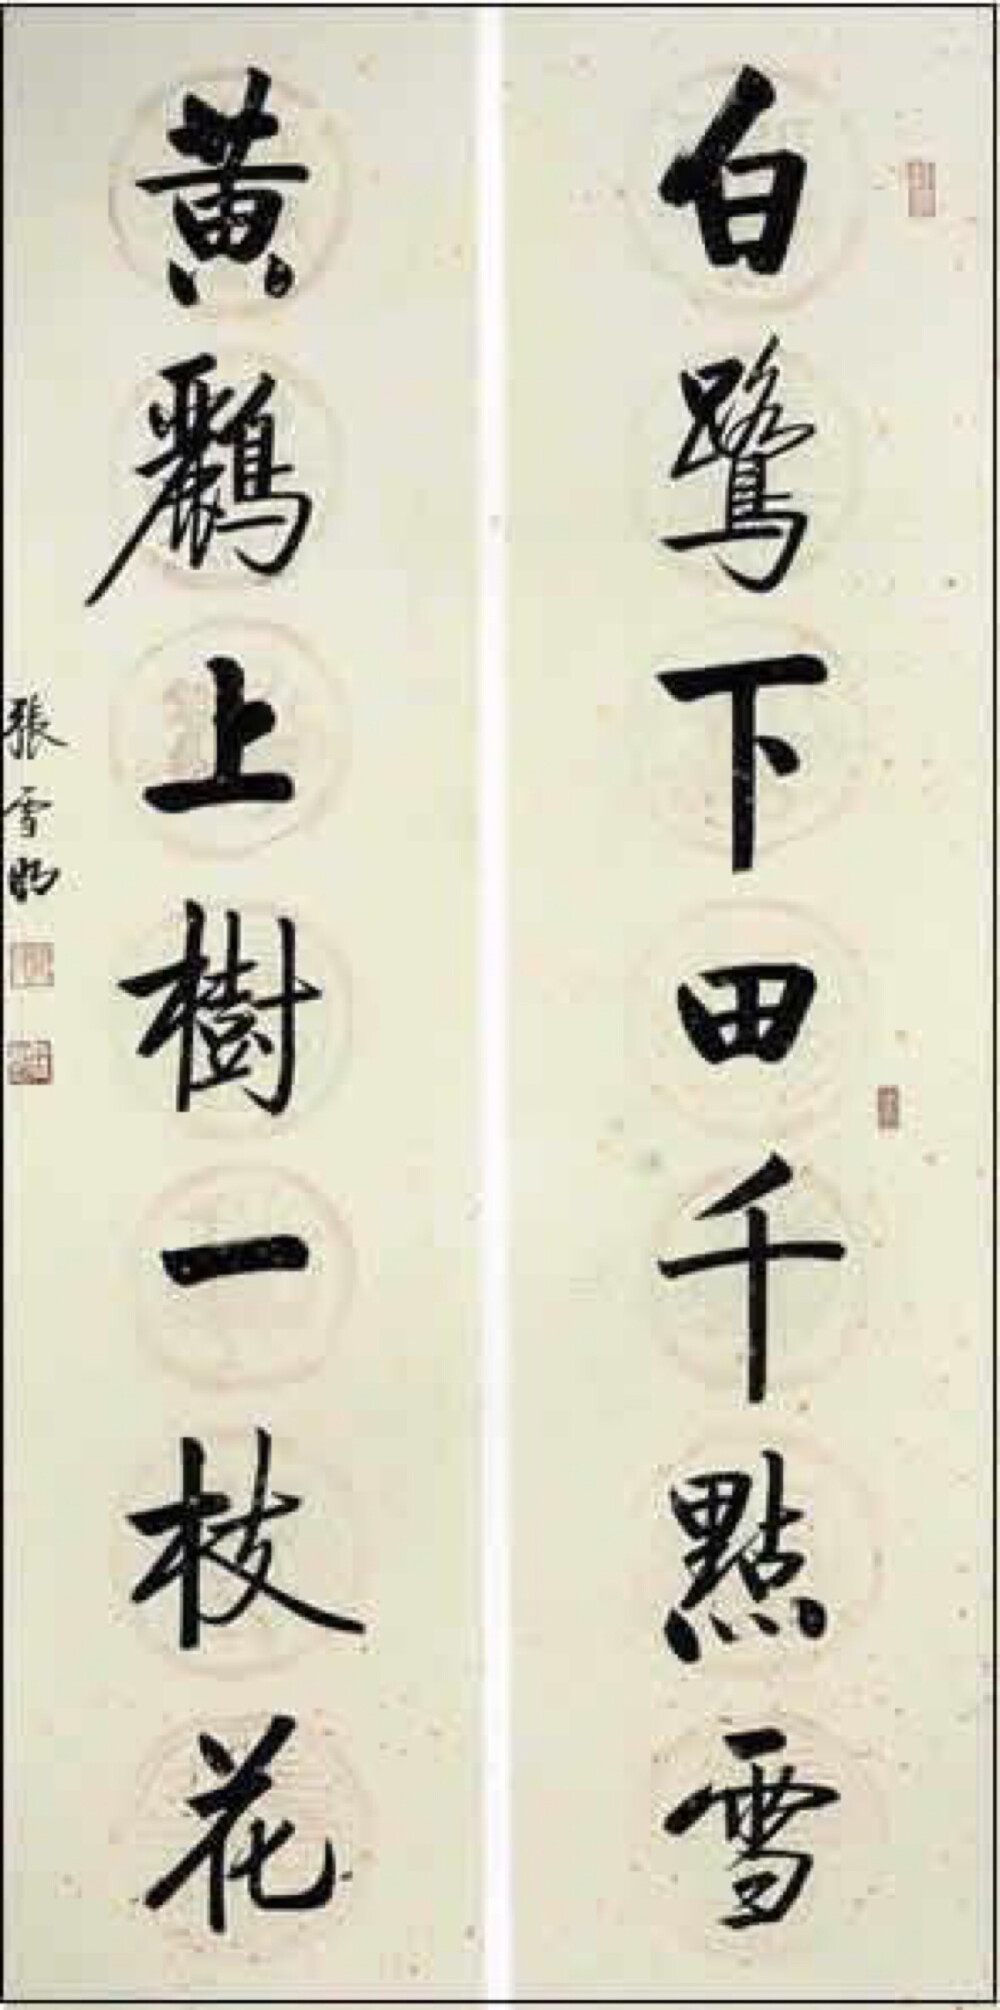 白鷺下田千點雪
黃鸝上樹一枝花
張雪明